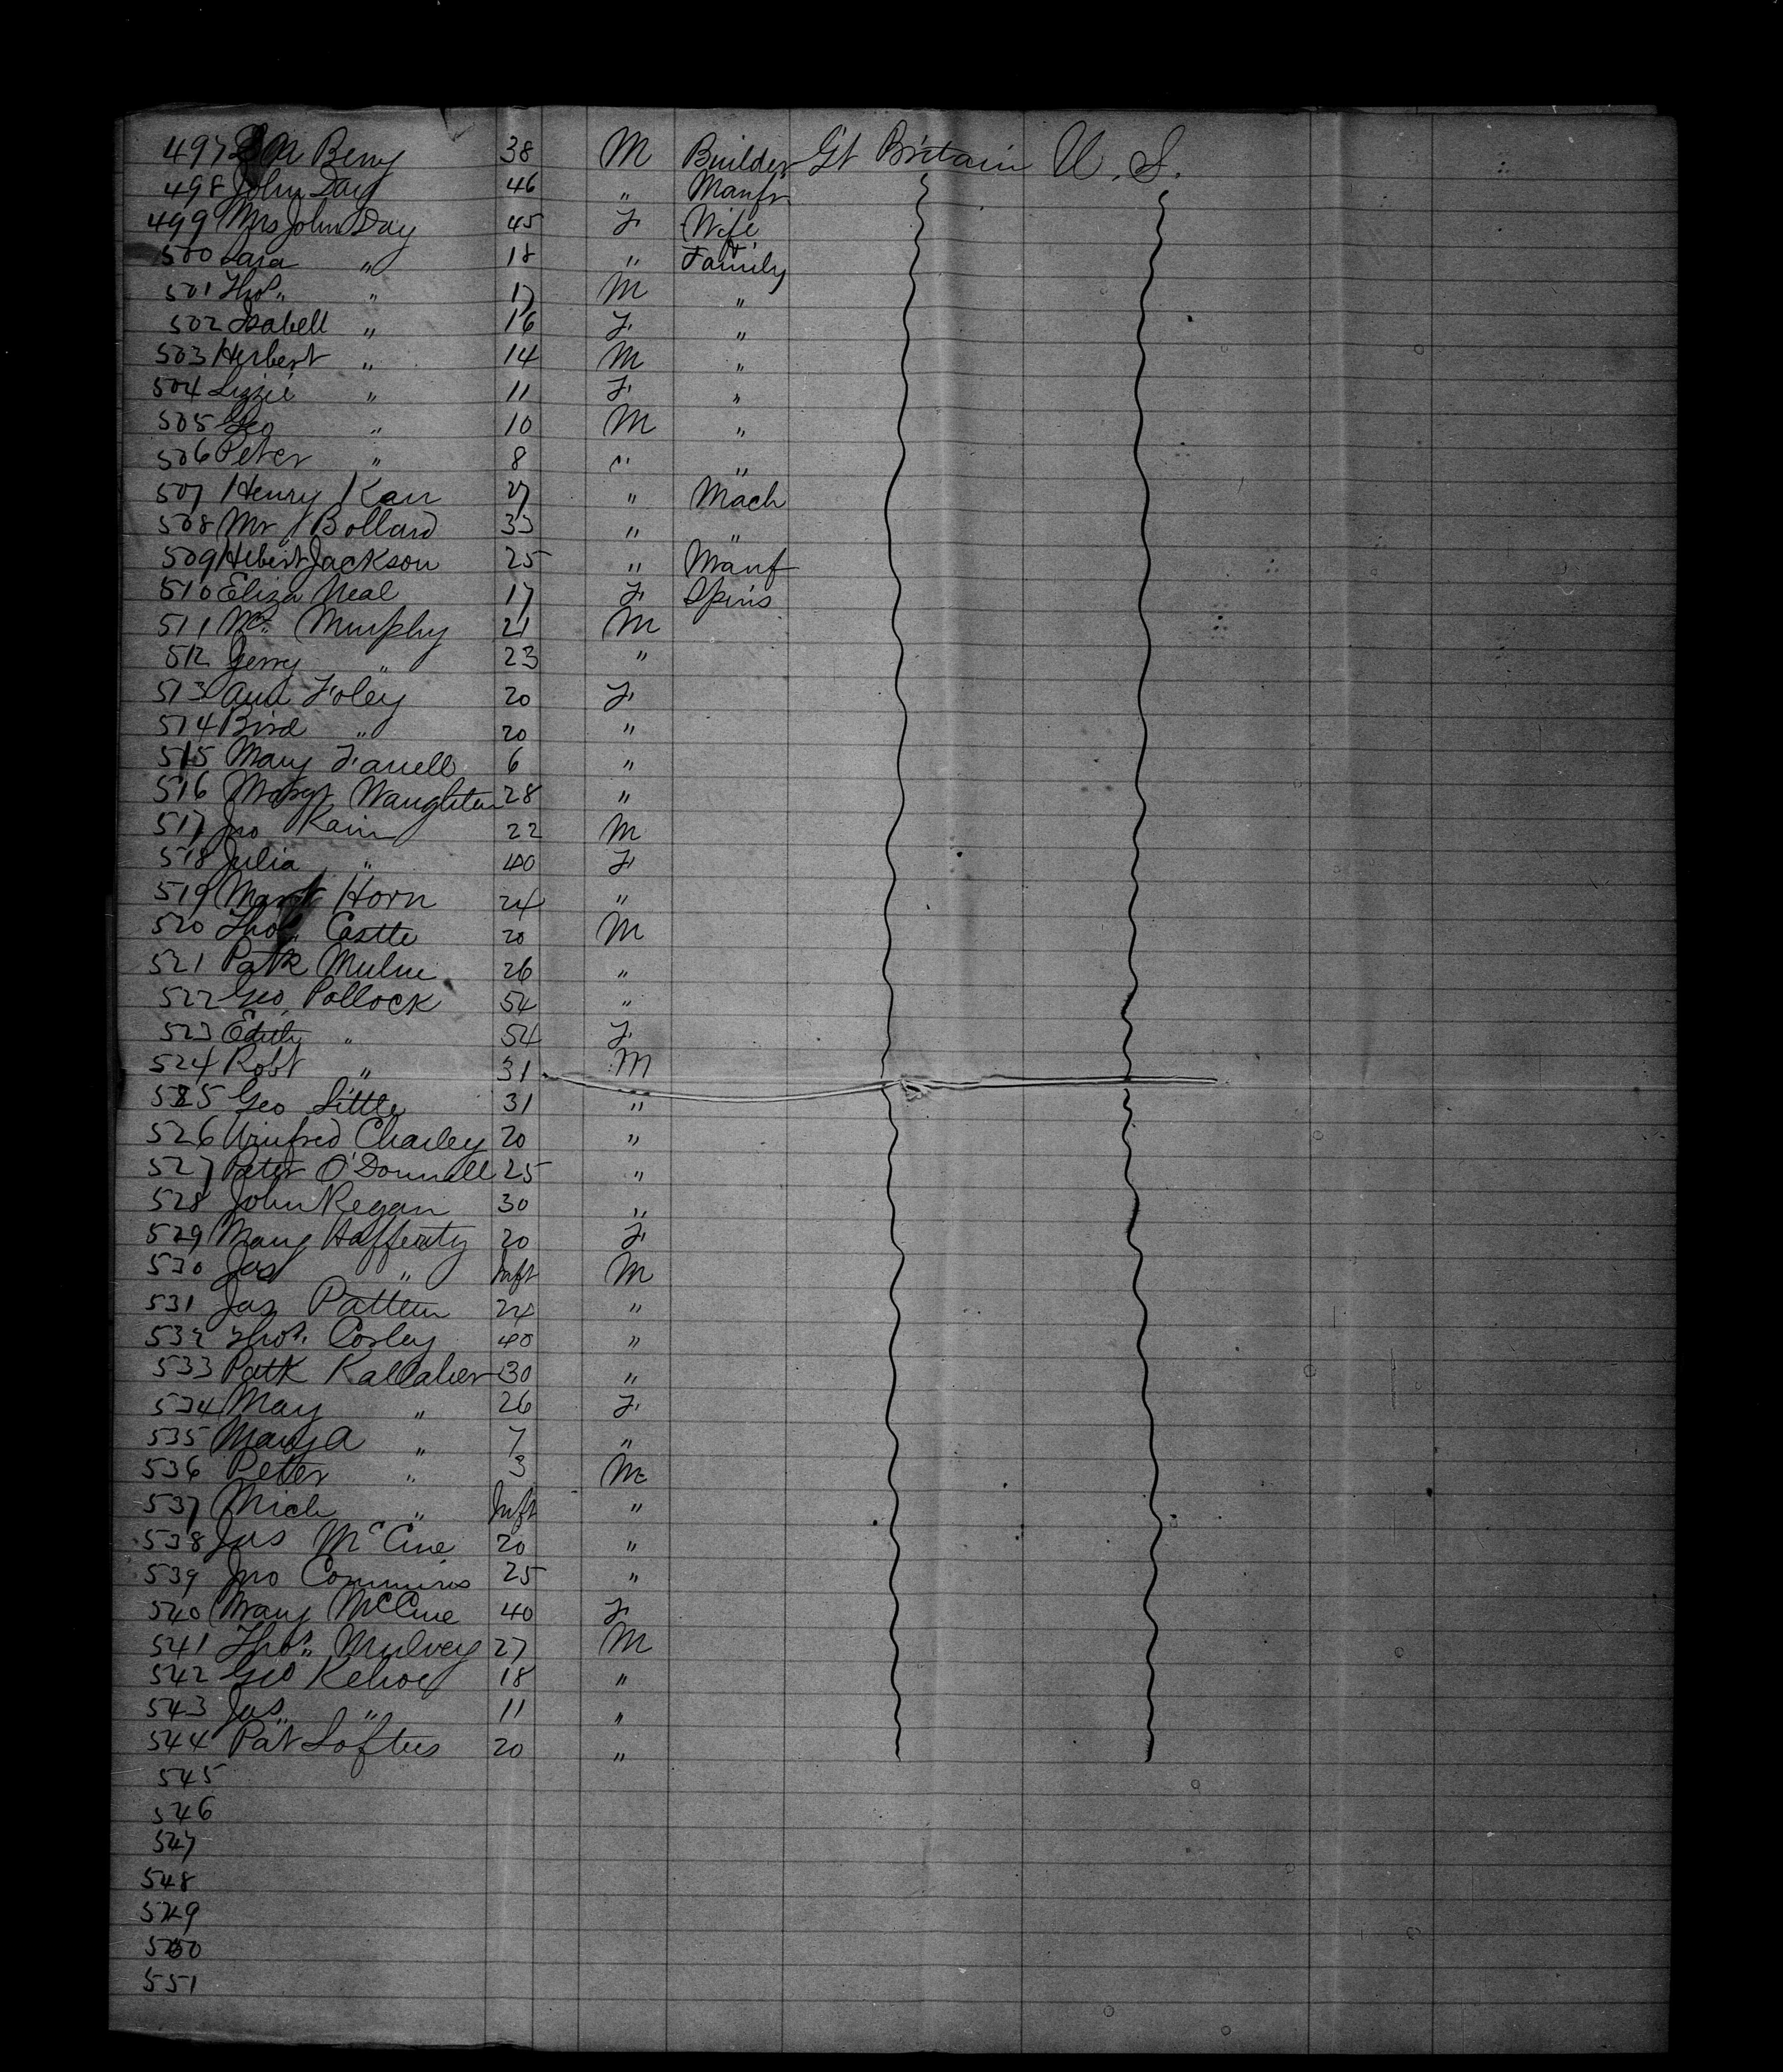 497 M Berry 38 M Builder Gt Britain U. S.
498 John Day 46 " Manfr
499 Mrs John Day 45 F. Wife
500 Sara " 18 " Family
501 Thos. " 17 M "
502 Isabell " 16 F. "
503 Herbert " 14 M "
504 Lizzie " 11 F. "
505 Geo " 10 M "
506 Peter " 8 " "
507 Henry Karr 27 " Mach
508 Mr Bollard 33 " "
509 Hebert Jackson 25 " Manf
510 Eliza Neal 17 F. Spins
511 Murphy 21 M
512 Jerry " 23 "
513 Ann Foley 20 F.
514 Bird " 20 "
515 Mary Farrell 6 "
516 Margt Naughton 28 "
517 Jno Kain 22 M
518 Julia " 40 F.
519 Margt Horn 24 "
520 Thos. Castle 20 M
521 Patk 26 "
522 Geo. Pollock 54 "
523 Edith " 54 F.
524 Robt " 31 M
525 Geo Little 31 "
526 Winfred Charley 20 "
527 Peter O'Donnell 25 "
528 John Regan 30 "
529 Mary Hafferty 20 F.
530 Jas " Inft M
531 Jas Patten 24 "
532 Thos. Cosley 40 "
533 Patk Kallaher 30 "
534 May " 26 F.
535 Mary A " 7 "
536 Peter " 3 M
537 Mich " Inft "
538 Jas McCue 20 "
539 Jno Commins 25 "
540 Mary McCue 40 F.
541 Thos. Mulvey 27 M
542 Geo Kehoe 18 "
543 Jas. " 11 "
544 Pat Loftus 20 "
545
546
547
548
549
550
551